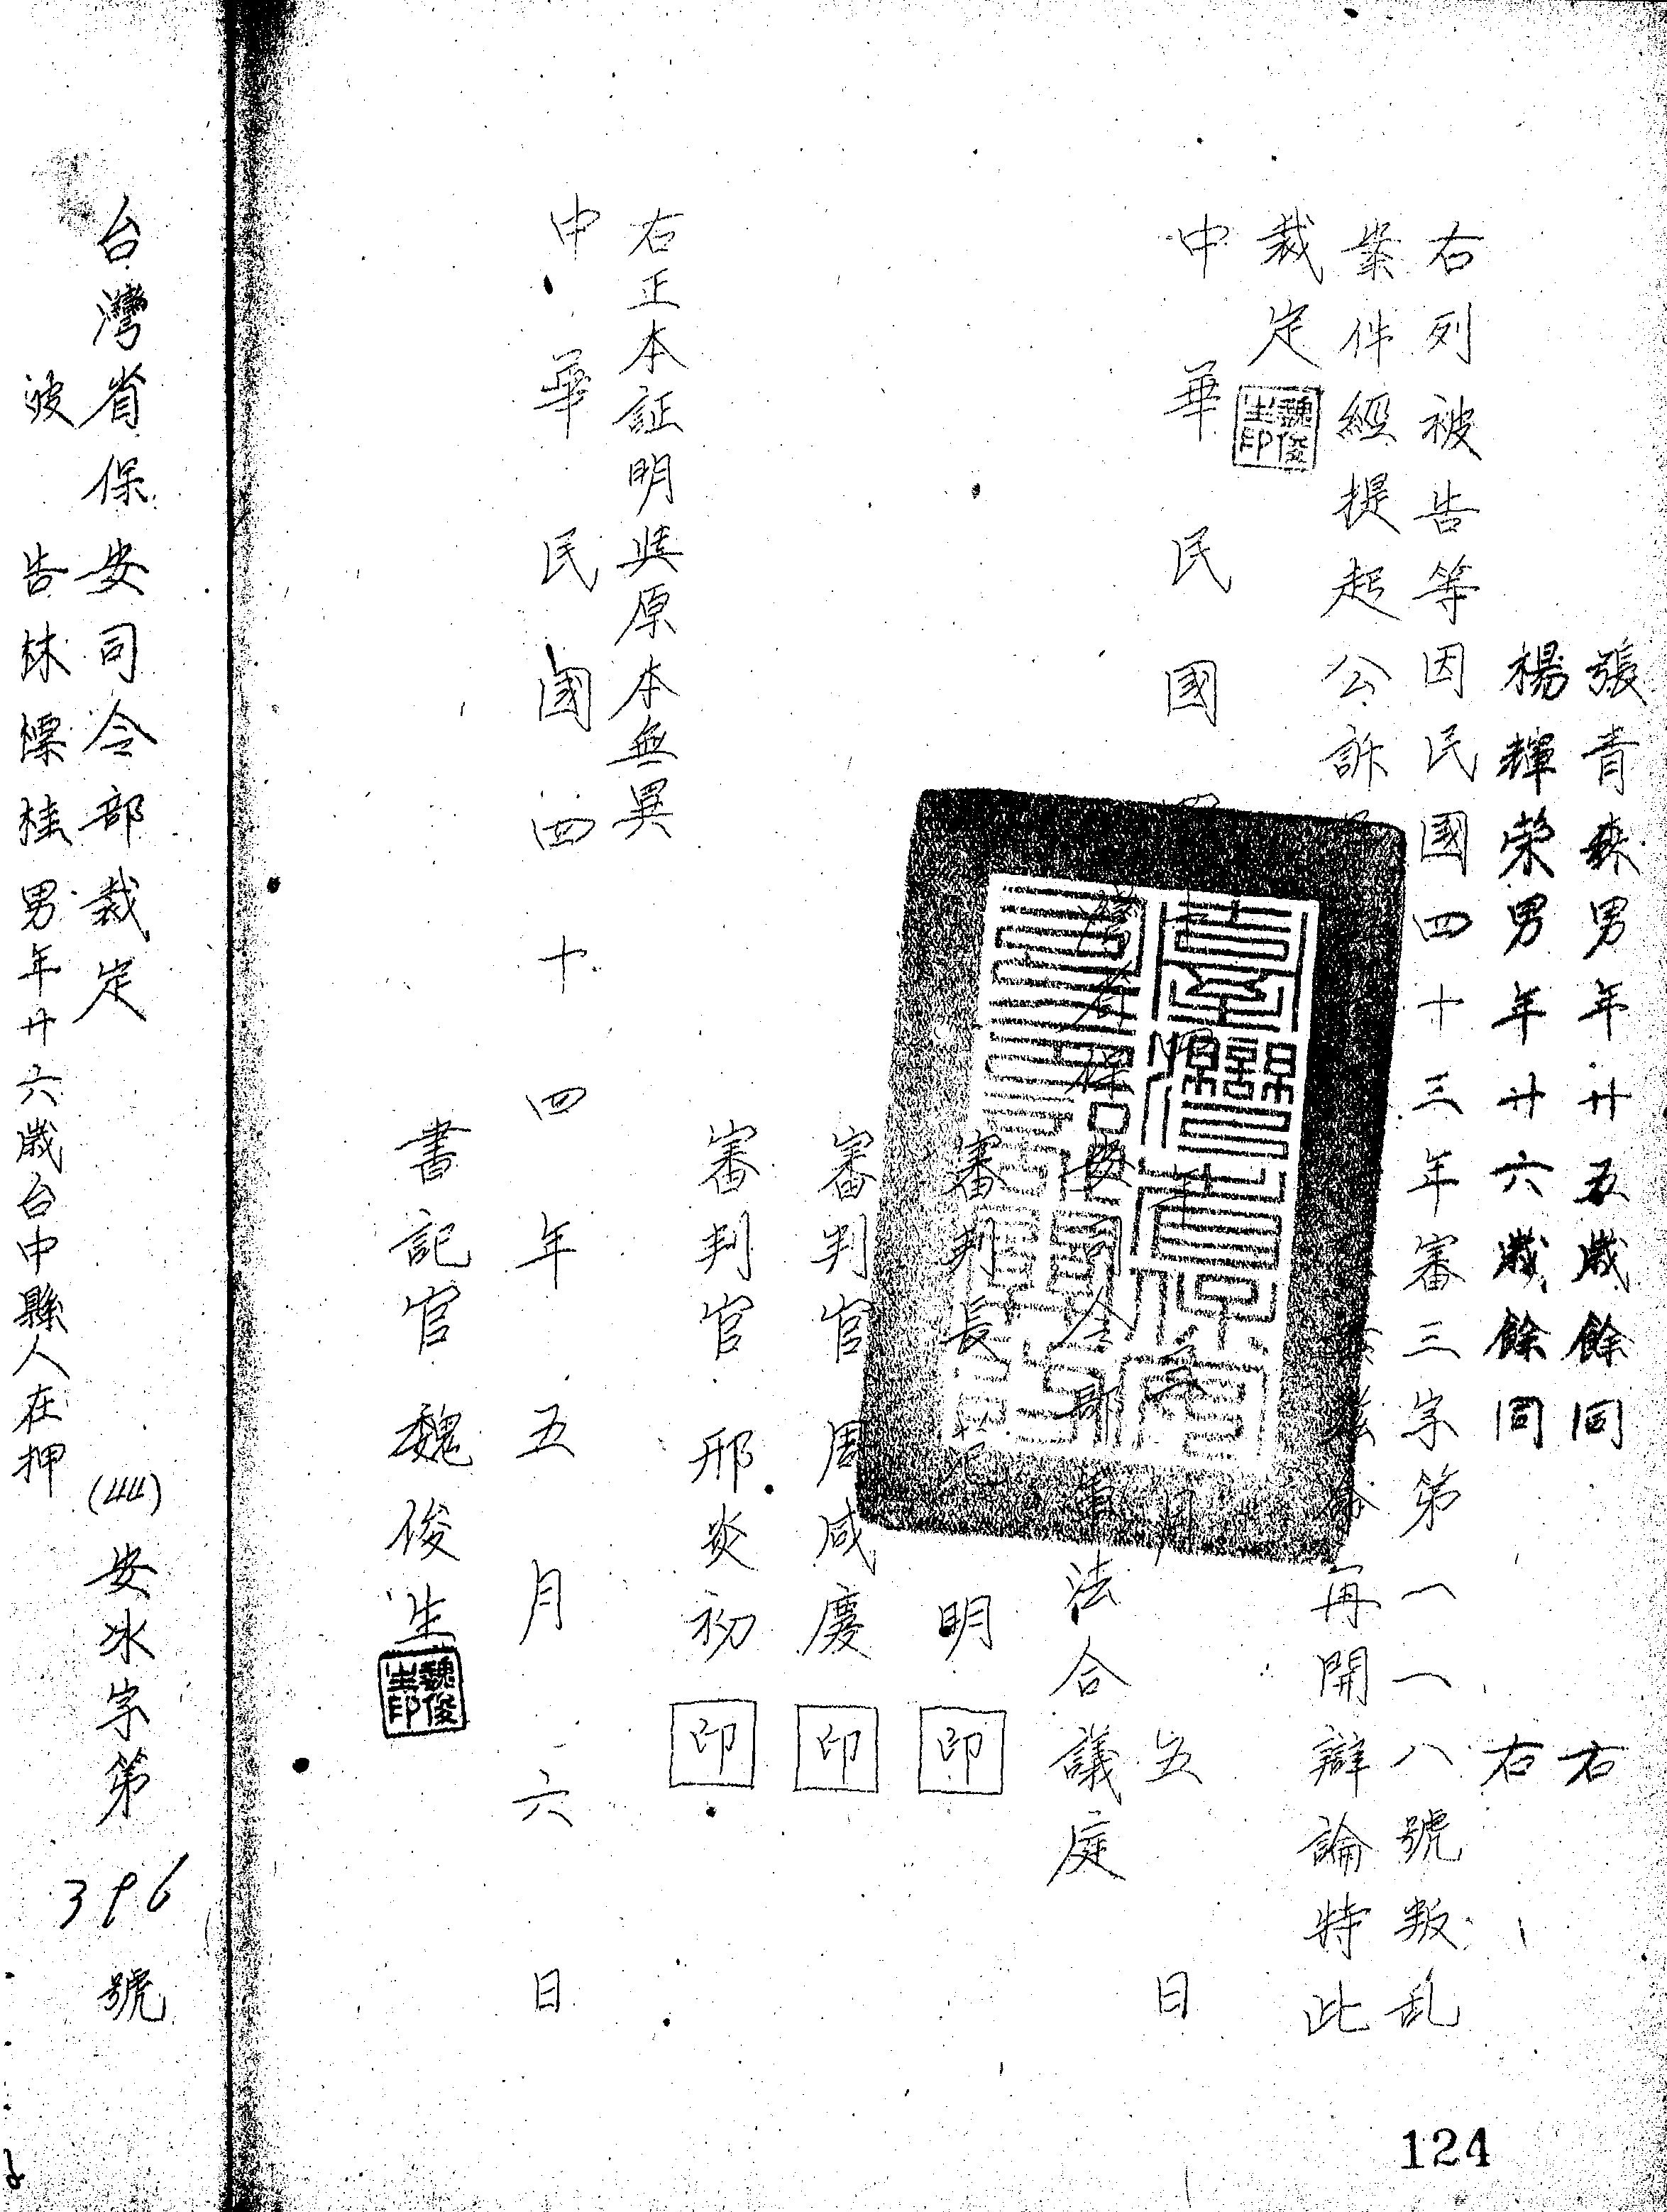 張青森男年廿五歲餘同右
楊輝榮男年廿六歲餘同右
右列被告等因民國四十三年審三字第一一八號叛乱
案件經提起公訴 再開辯論特此
裁定
魏俊生印
中華民國四十四年五月五日
灣省保安司令部軍法合議庭
審判長 明 印
審判官周咸慶 印
審判官邢炎初 印
右正本証明與原本無異
中華民國四十四年五月六日
書記官魏俊生
魏俊生印
台灣省保安司令部裁定 (44)安冰字第396號
被告林標桂男年廿六歲台中縣人在押
124